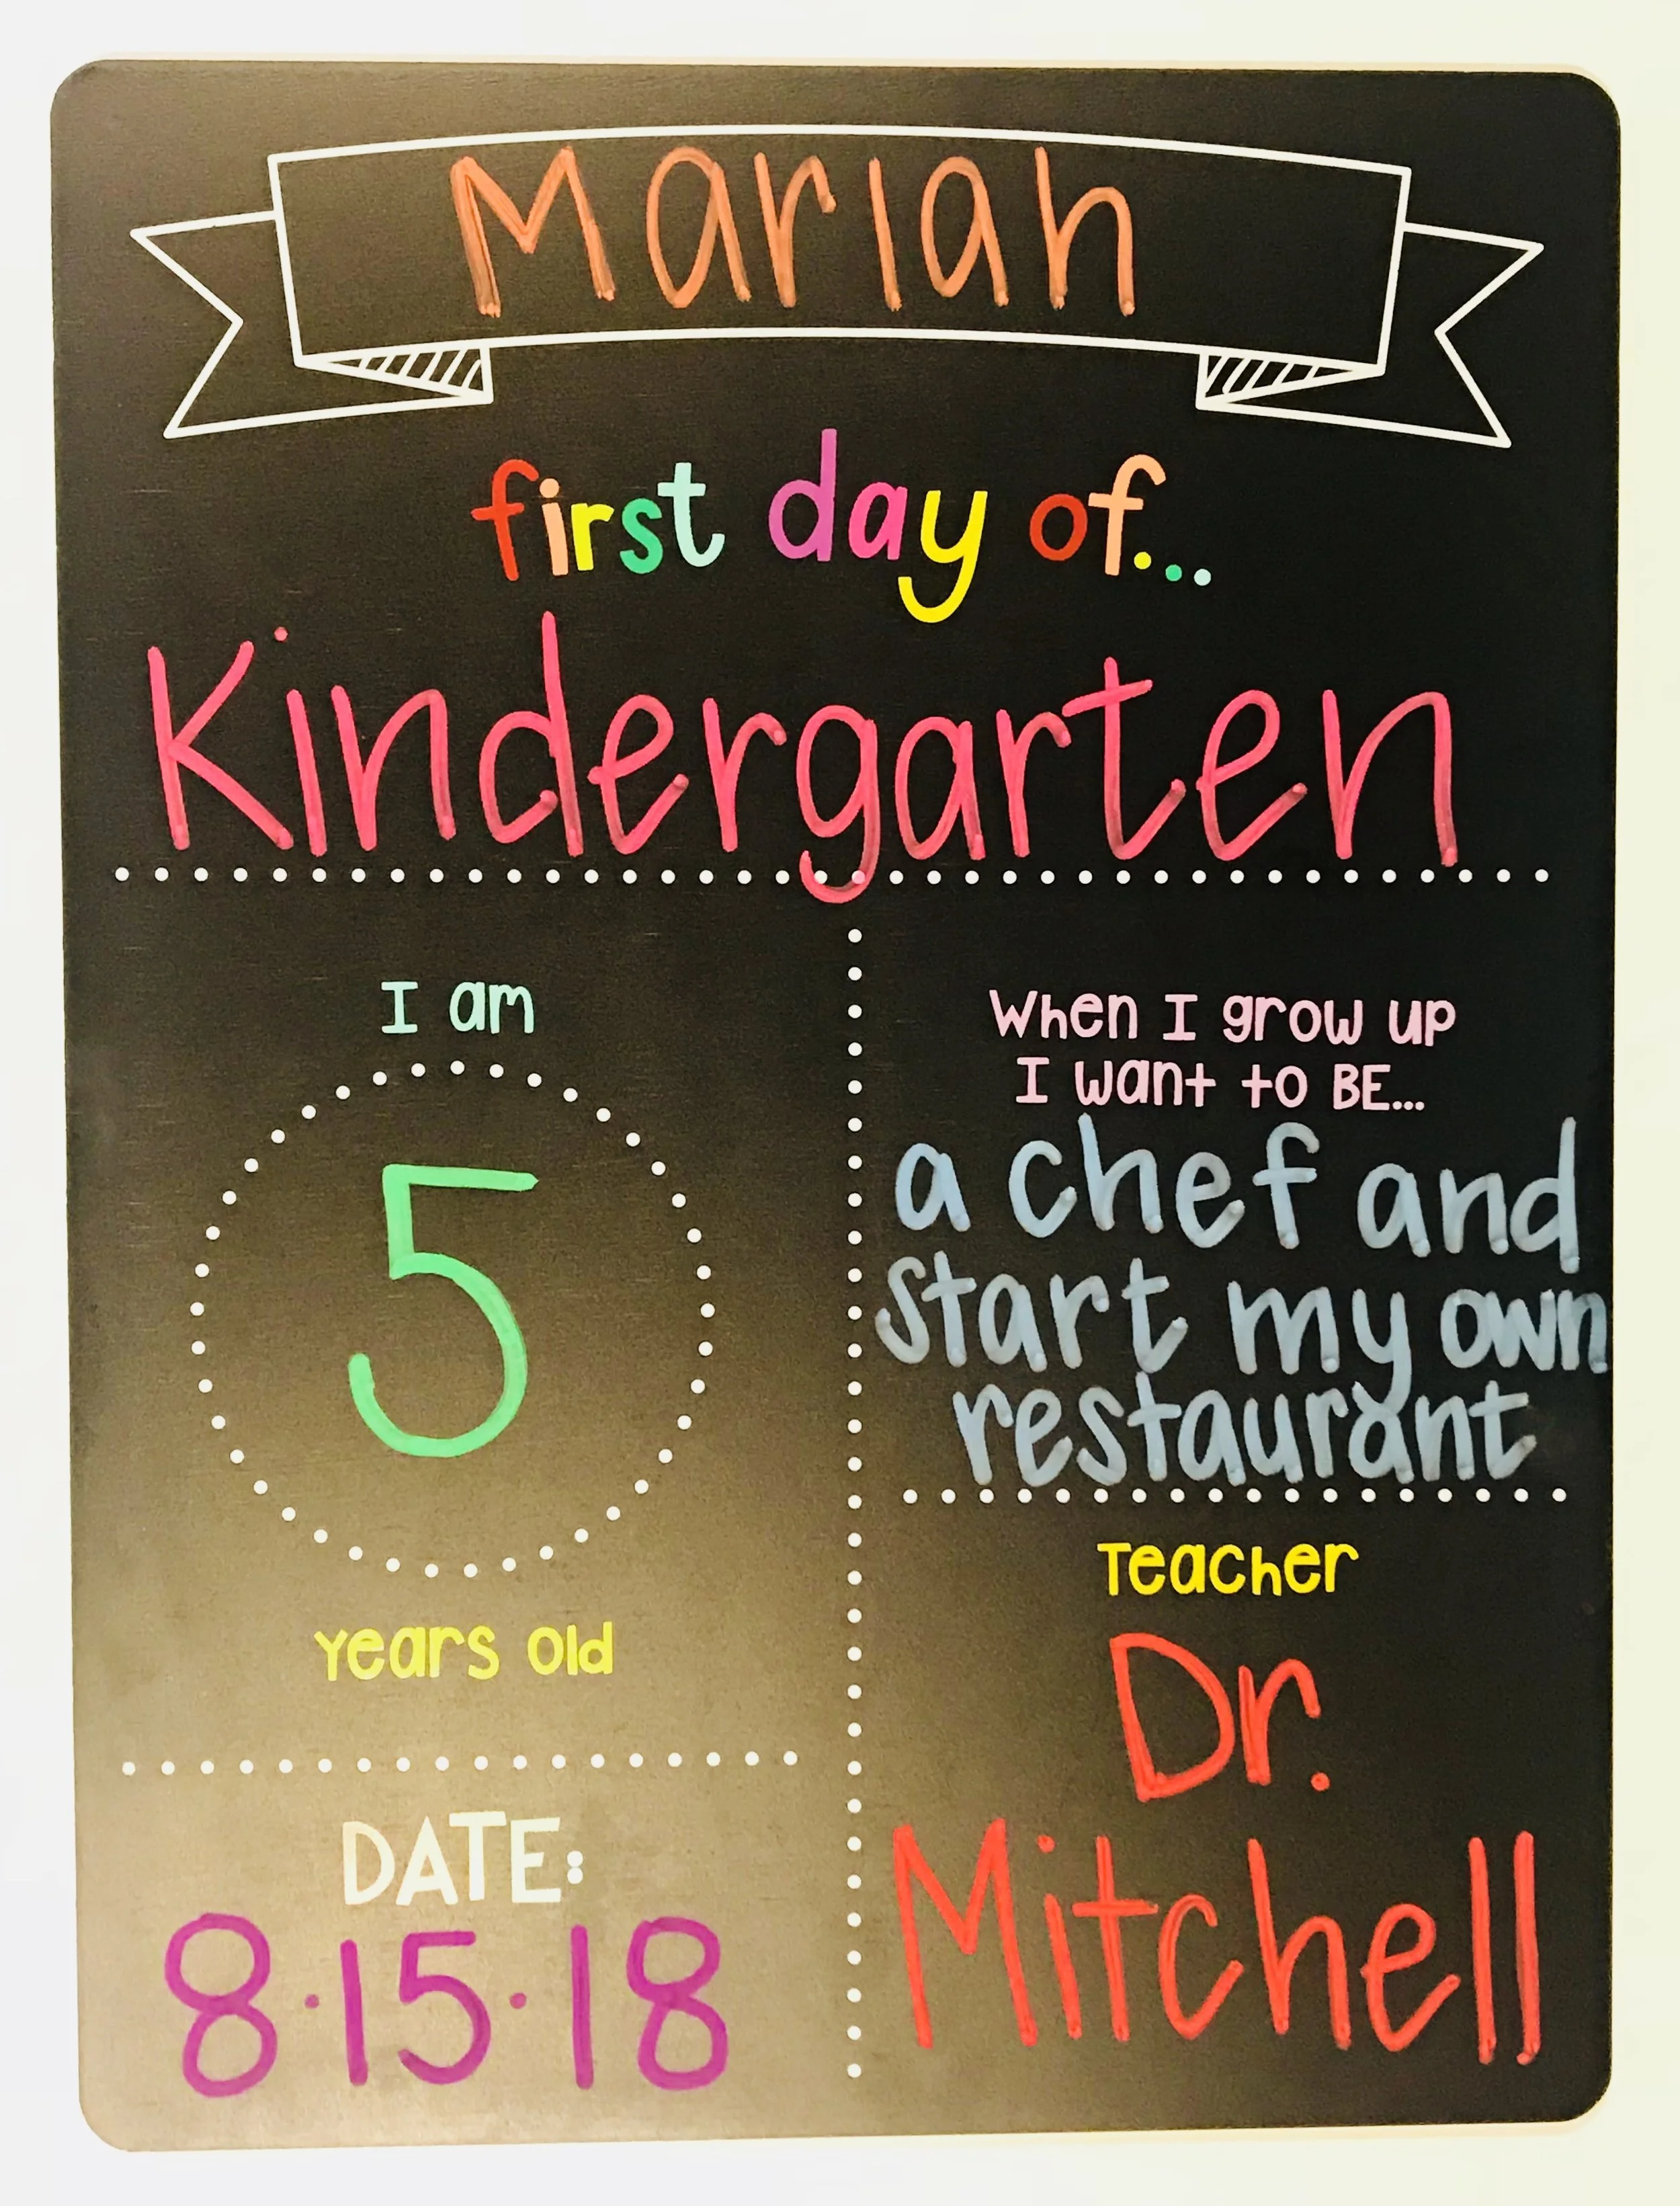 Mariah
first day of...
Kindergarten
I am
5
years old
DATE:
8·15·18
When I grow up
I want to BE...
a chef and
start my own
restaurant
Teacher
Dr.
Mitchell